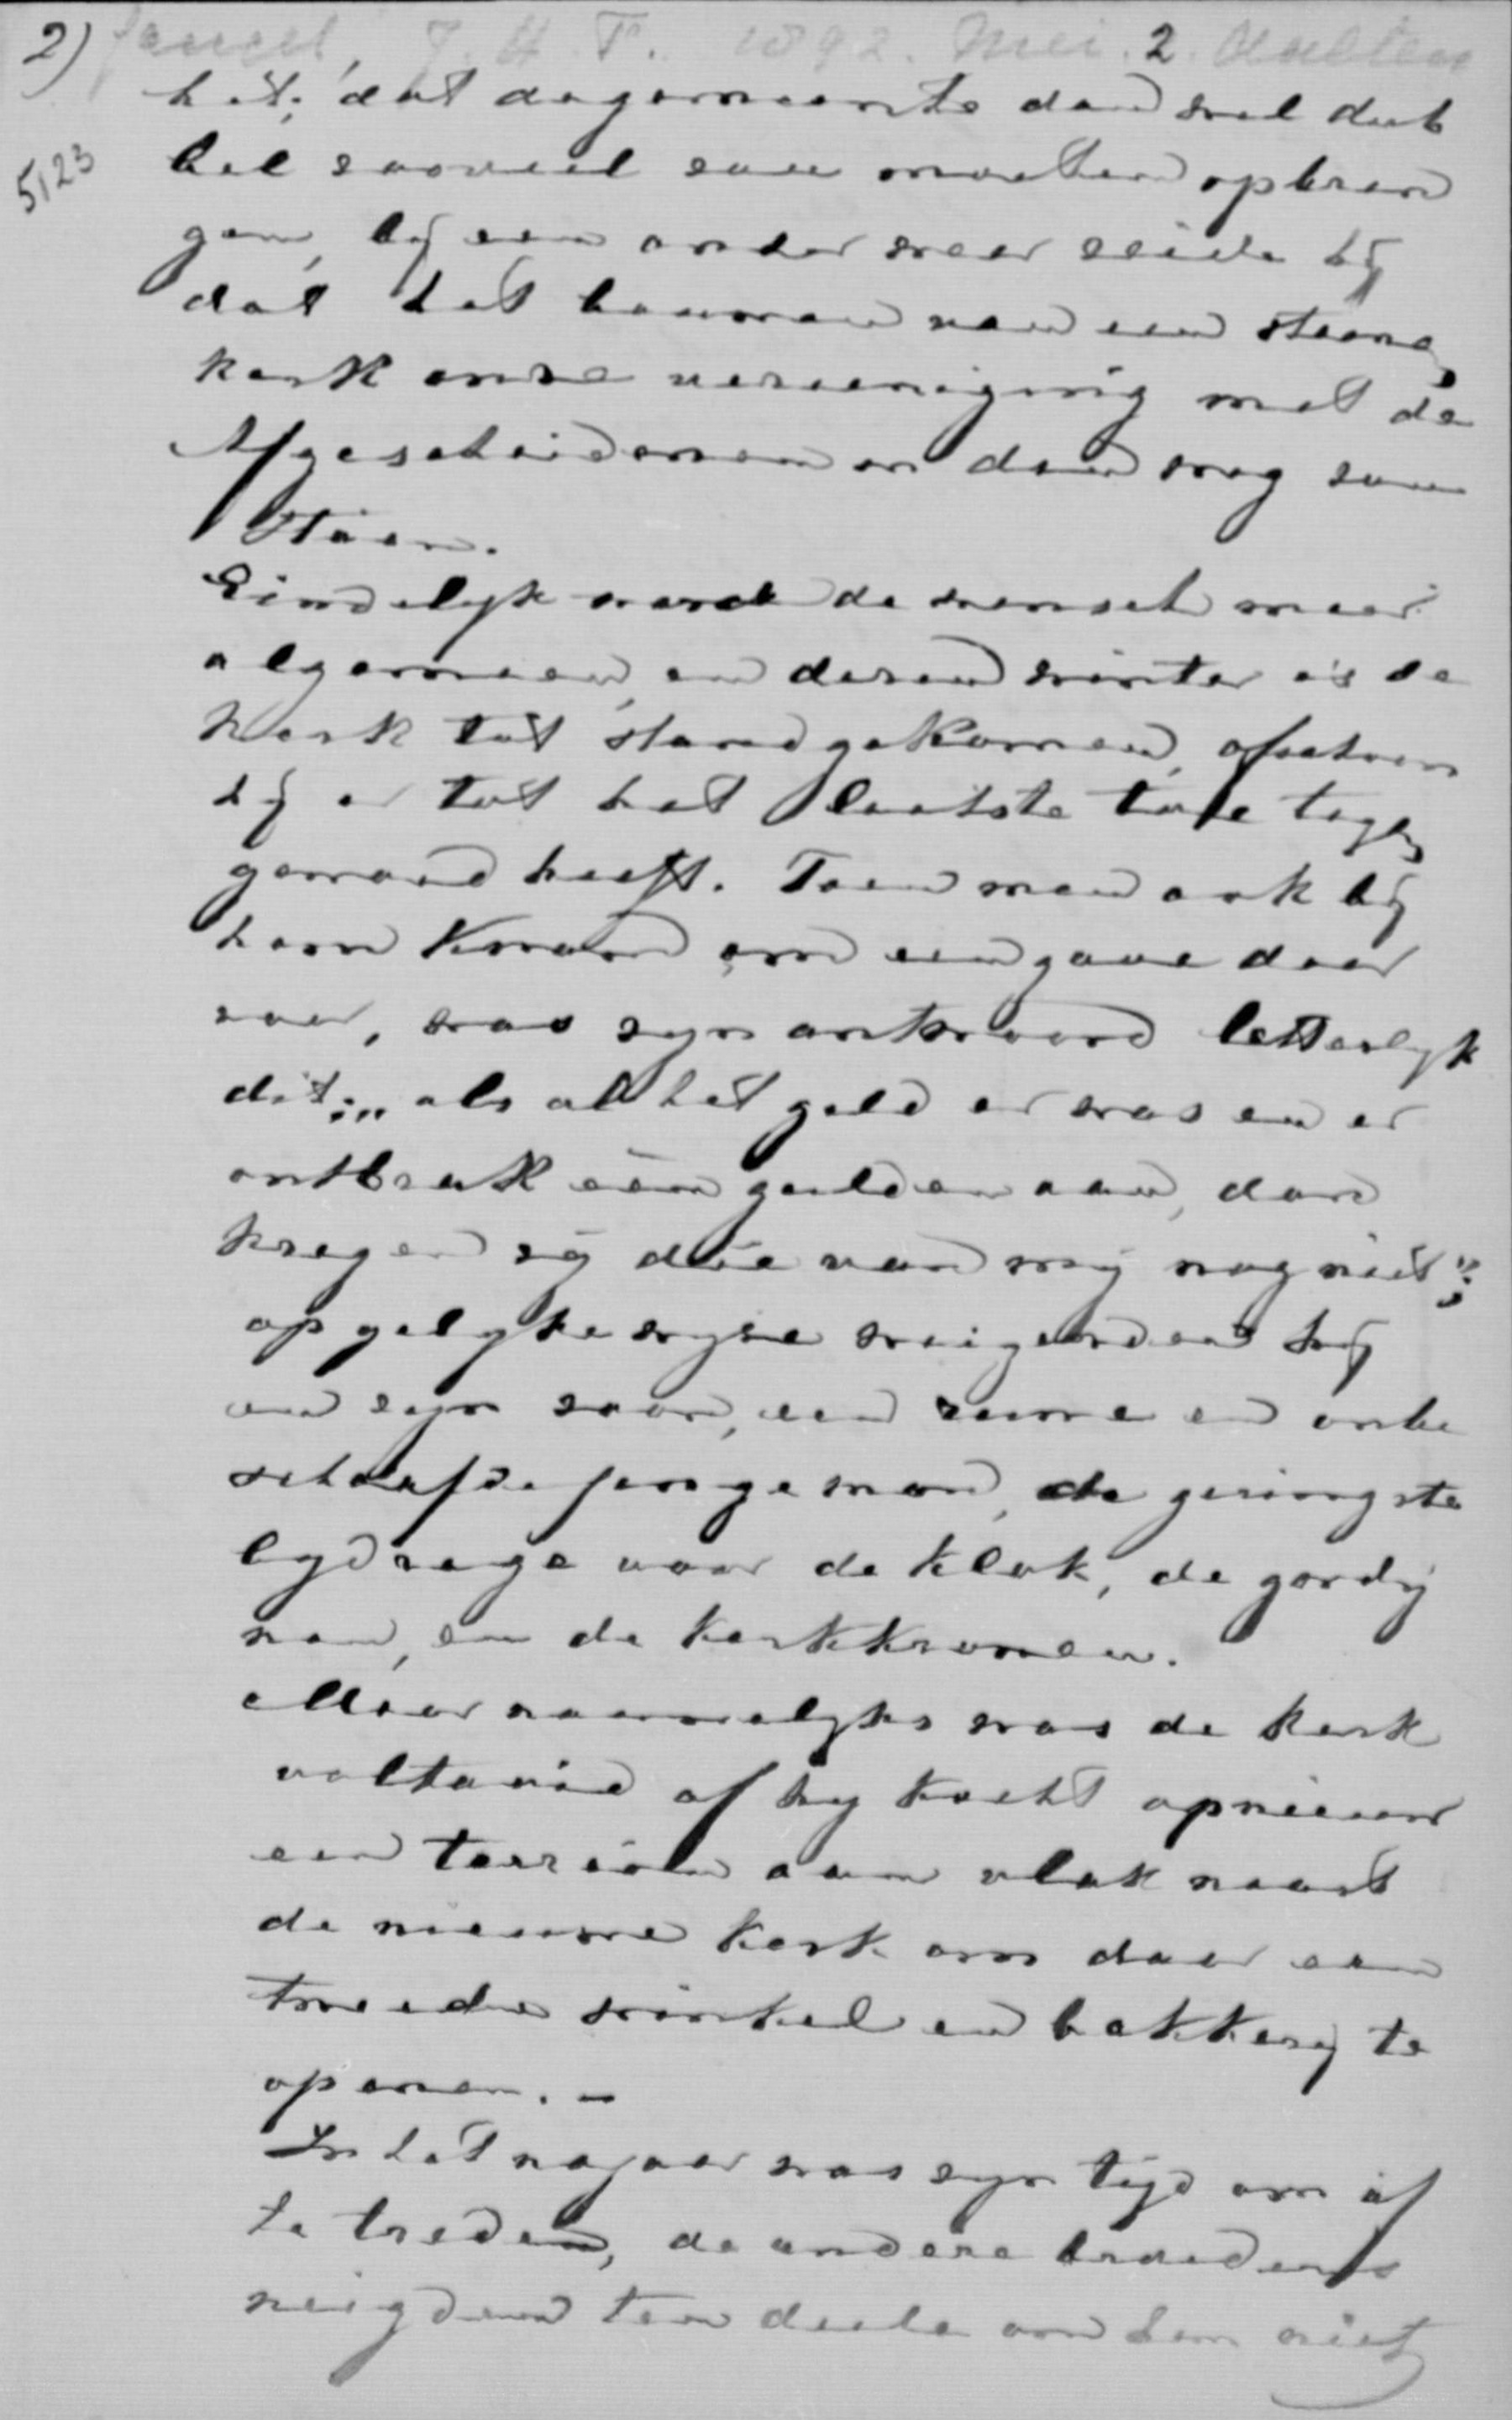 2) J. H. F. 1892. Mei. 2. Aalten
5123
het; dat de gemeente dan wel dub
bel zooveel zou moeten opbren
gen, bij een ander weer zeide hij
dat het bouwen van een steene
kerk onze vereeniging met de
Afgescheidenen in den weg zou
staan.
Eindelyk werd de wensch meer
algemeen, en dezen winter is de
kerk tot stand gekomen, ofschoon
hij er tot het laatste toe tegen
gewoed heeft. Toen men ook bij
hem kwam om een gave daar
voor, was zyn antwoord letterlyk
dit: „als al het geld er was en er
ontbrak één gulden aan, dan
kregen zij die van mij nog niet";
op gelyke wyze weigerden hij
en zyn zoon, een ruwe en onbe
schaafde jonge man, de geringste
bydrage voor de klok, de gordij
nen, en de kerkkronen.
Maar nauwelyks was de kerk
voltooid of hy kocht opnieuw
een terrein aan vlak naast
de nieuwe kerk om daar een
tweede winkel en bakkerij te
openen. –
In het najaar was zyn tijd om af
te treden, de andere broeders
neigden ten deele om hem niet